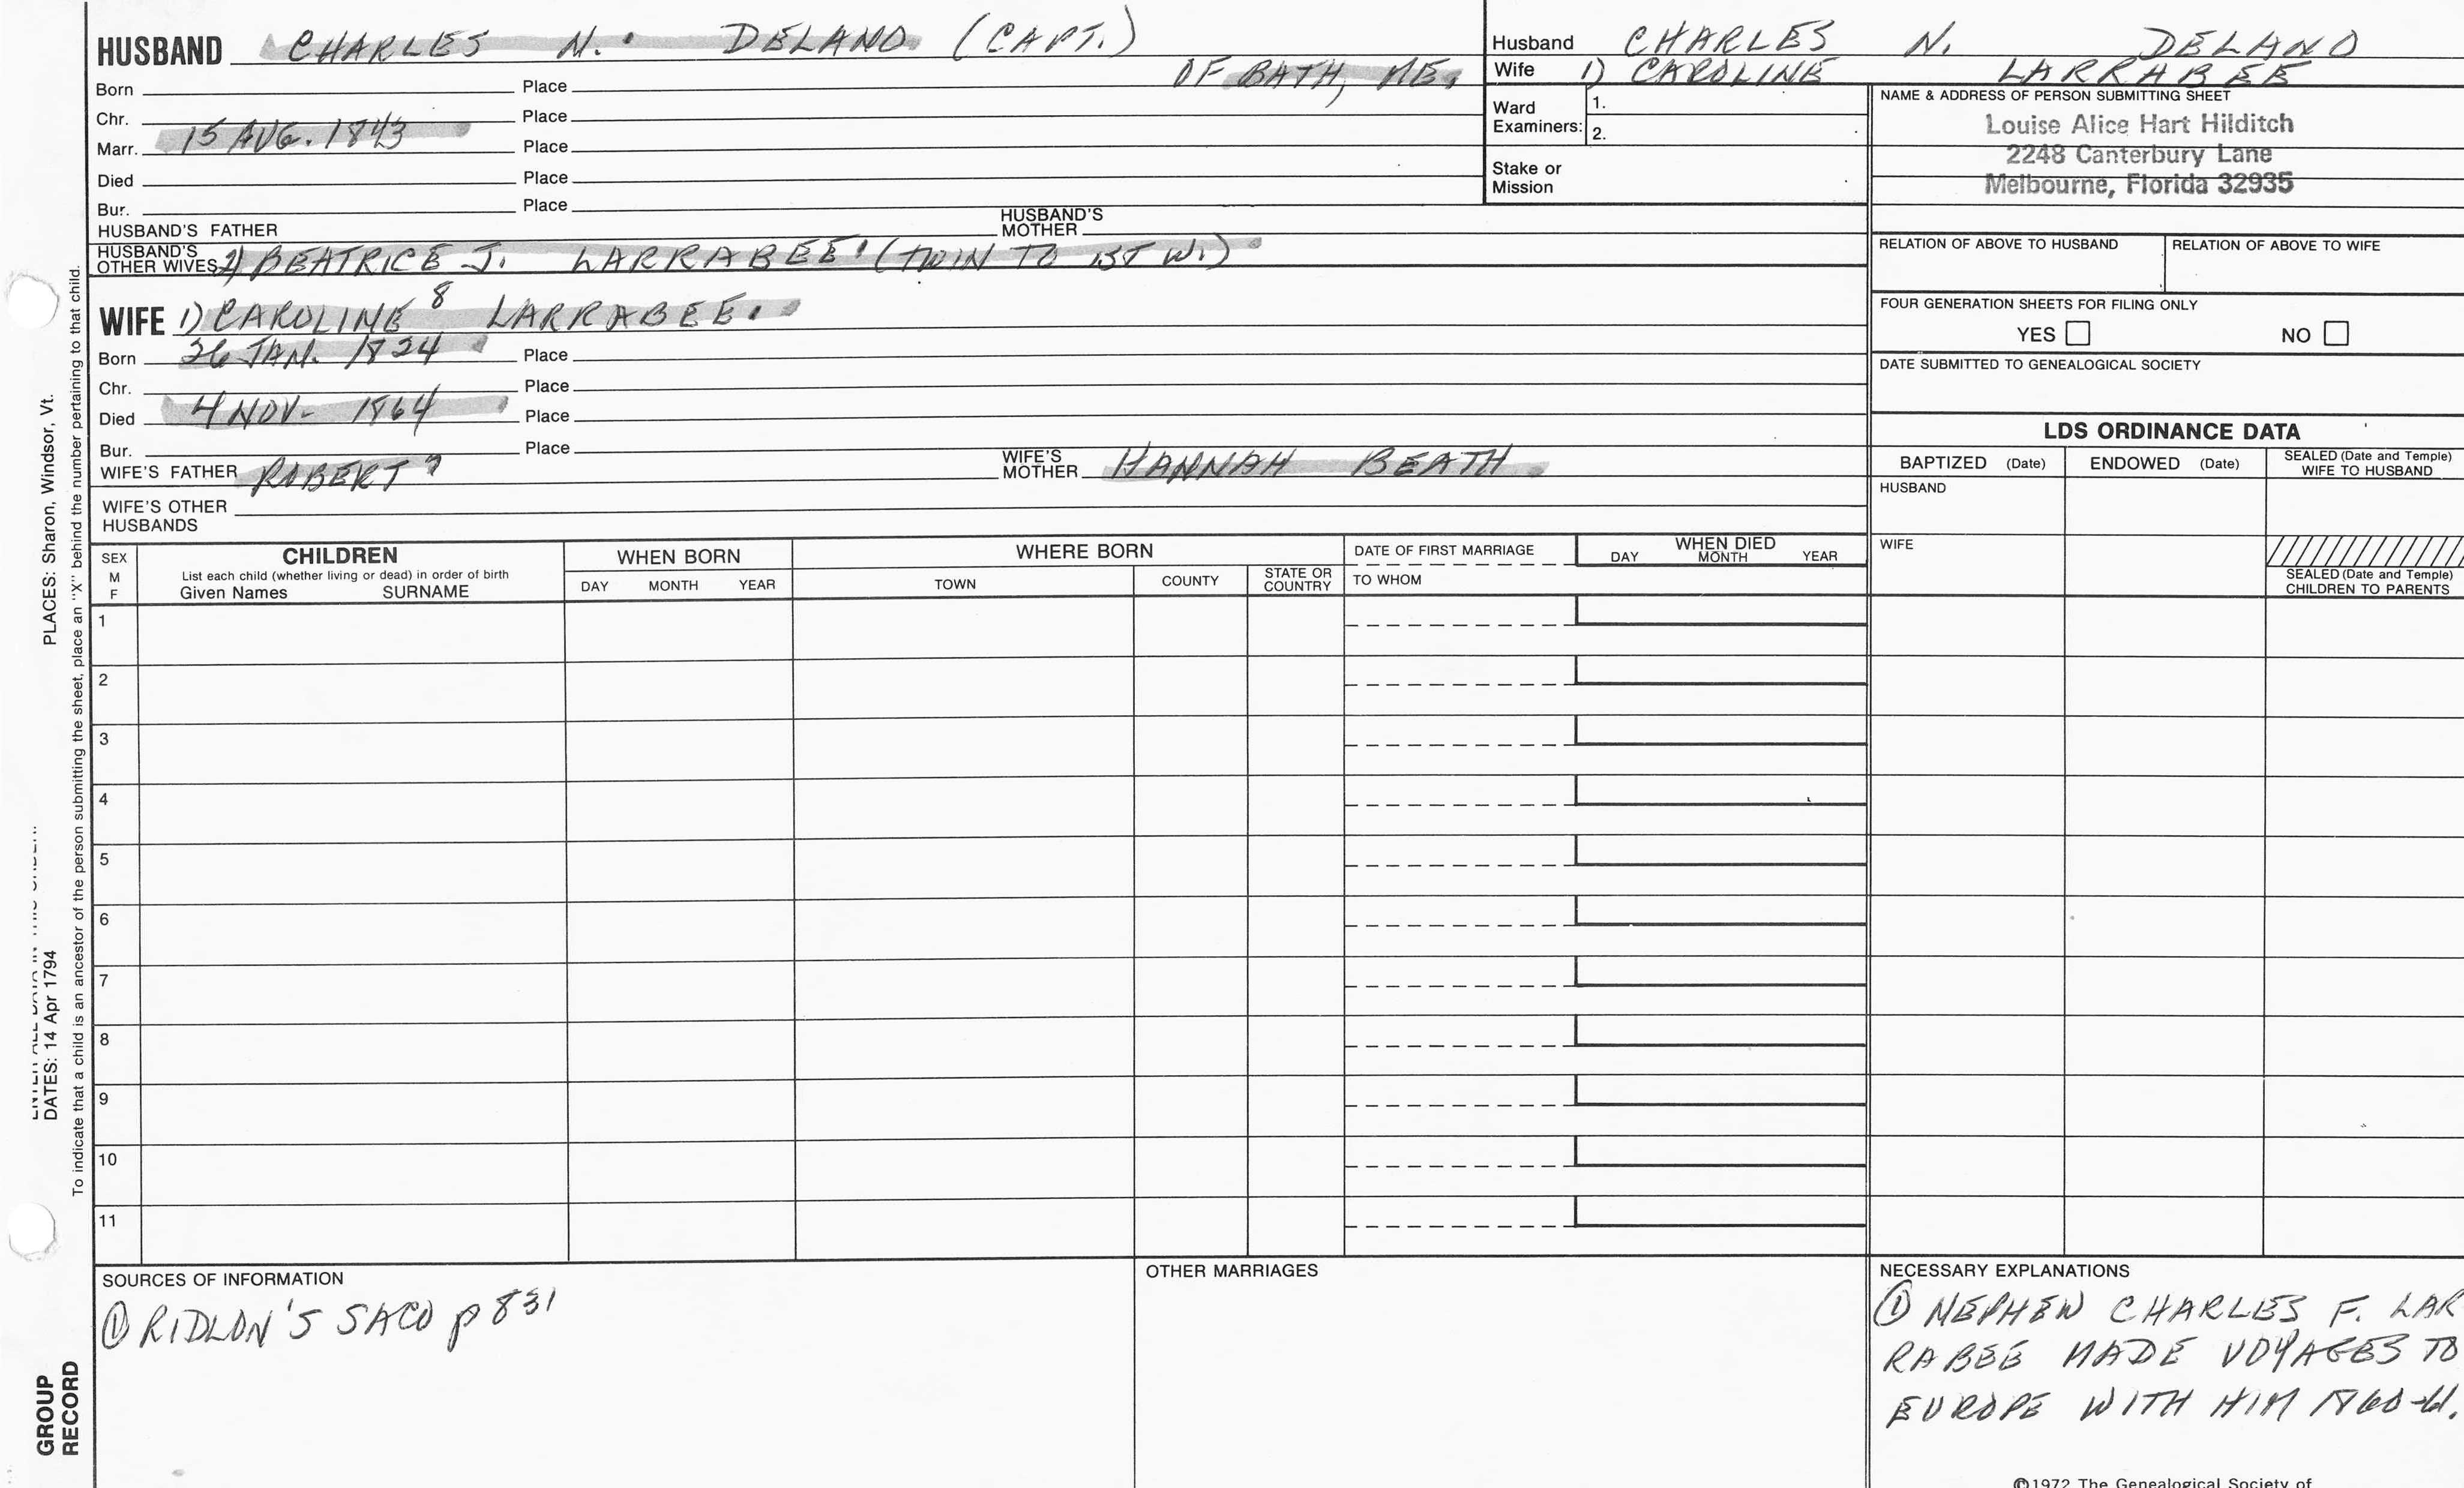 HUSBAND CHARLES N. DELANO (CAPT.)
OF BATH, ME.
Born Place
Chr. Place
Marr. 15 AUG. 1843 Place
Died Place
Bur. Place
HUSBAND'S FATHER HUSBAND'S MOTHER
HUSBAND'S OTHER WIVES 2) BEATRICE J. LARRABEE (TWIN TO 1ST W.)
WIFE 1) CAROLINE 8 LARRABEE.
Born 26 JAN. 1824 Place
Chr. Place
Died 4 NOV- 1864 Place
Bur. Place
WIFE'S FATHER ROBERT 7 WIFE'S MOTHER HANNAH BEATH
WIFE'S OTHER HUSBANDS
Husband CHARLES N. DELANO
Wife 1) CAROLINE LARRABEE
Ward Examiners: 1.
2.
Stake or Mission
NAME & ADDRESS OF PERSON SUBMITTING SHEET
Louise Alice Hart Hilditch
2248 Canterbury Lane
Melbourne, Florida 32935
RELATION OF ABOVE TO HUSBAND RELATION OF ABOVE TO WIFE
FOUR GENERATION SHEETS FOR FILING ONLY
YES NO
DATE SUBMITTED TO GENEALOGICAL SOCIETY
LDS ORDINANCE DATA
BAPTIZED (Date) ENDOWED (Date) SEALED (Date and Temple) WIFE TO HUSBAND
HUSBAND
WIFE
SEALED (Date and Temple) CHILDREN TO PARENTS
SEX M F
CHILDREN
List each child (whether living or dead) in order of birth
Given Names SURNAME
WHEN BORN
DAY MONTH YEAR
WHERE BORN
TOWN COUNTY STATE OR COUNTRY
DATE OF FIRST MARRIAGE
TO WHOM
WHEN DIED
DAY MONTH YEAR
1
2
3
4
5
6
7
8
9
10
11
SOURCES OF INFORMATION
① RIDLON'S SACO p 831
OTHER MARRIAGES
NECESSARY EXPLANATIONS
① NEPHEW CHARLES F. LAR
RABEE MADE VOYAGES TO
EUROPE WITH HIM 1860-61.
©1972 The Genealogical Society of
PLACES: Sharon, Windsor, Vt.
DATES: 14 Apr 1794
To indicate that a child is an ancestor of the person submitting the sheet, place an "X" behind the number pertaining to that child.
GROUP
RECORD